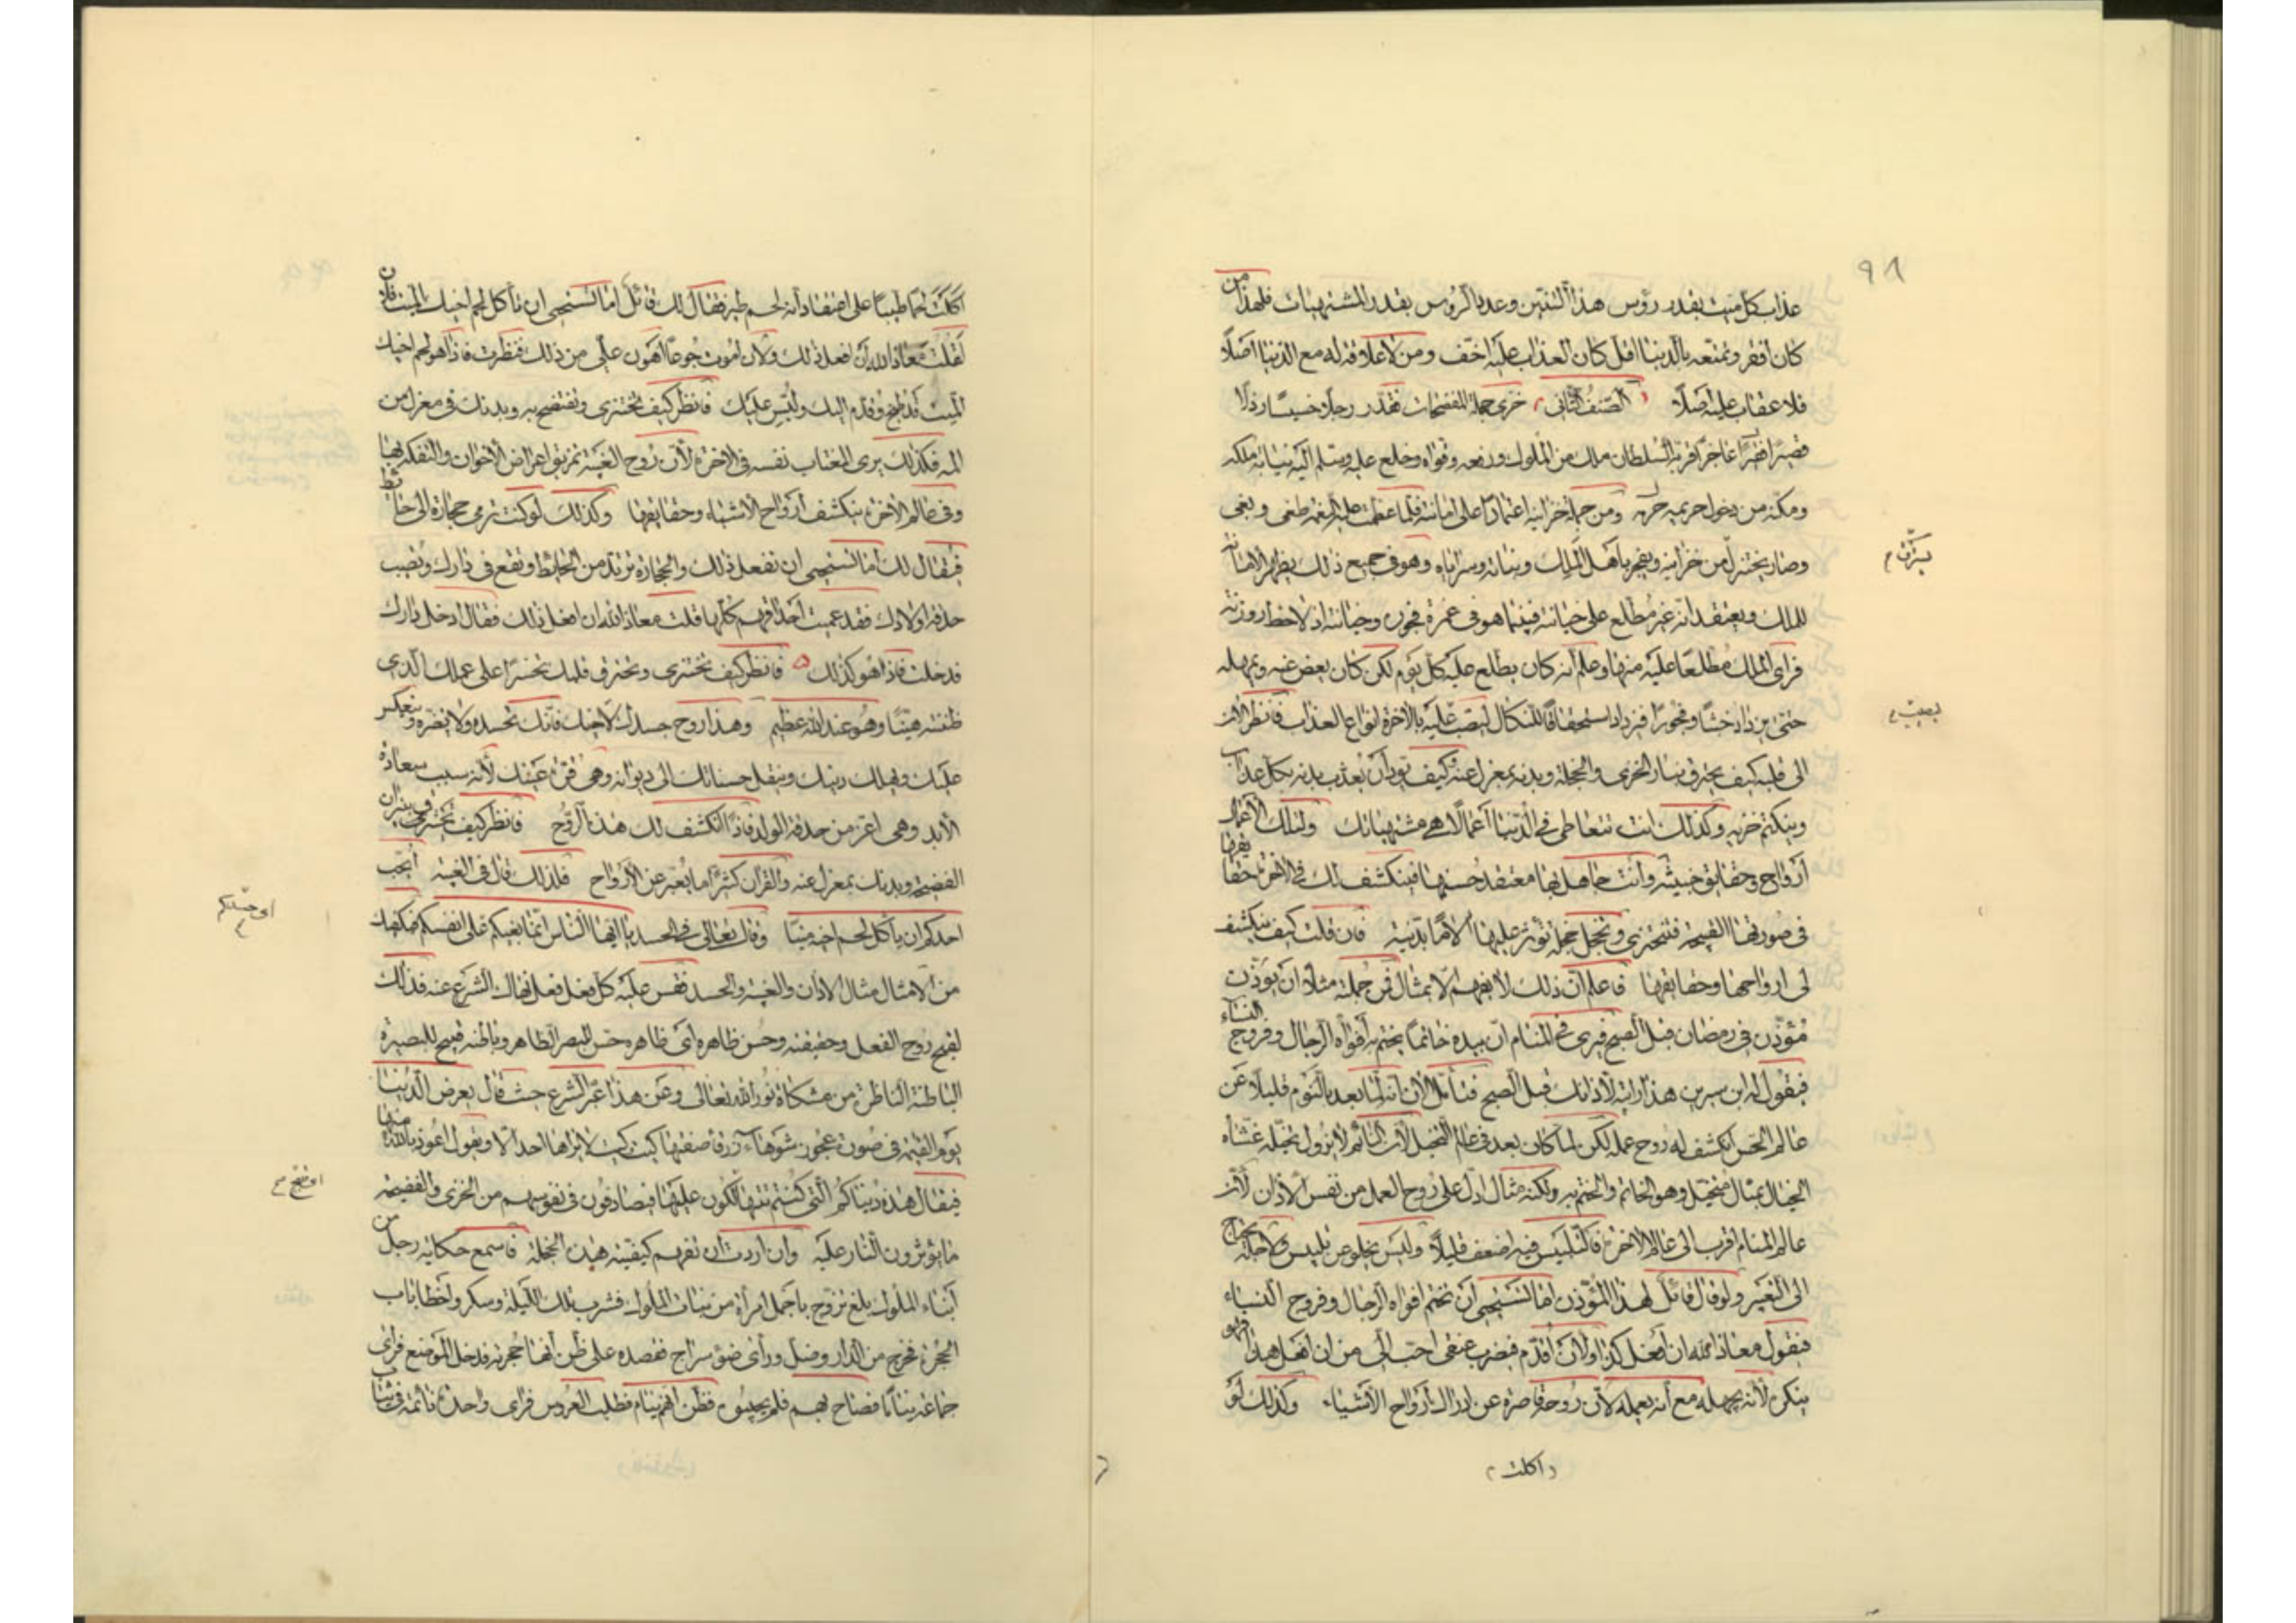 ٩٨
عذاب كل ميت بقدر رؤس هذا التنين وعدد الرؤس بقدر المشتهيات فلهذا من
كان افقر وتمتعه بالدنيا اقل كان العذاب عليه اخف ومن لا علاقة له مع الدنيا اصلًا
فلا عقاب عليه اصلًا الصنف الثانى خزى خجلة المفضحات فقدر رجلا خسيسًا رذلا
فقيرًا عاجزًا قربه السلطان ملك من الملوك ورفعه وقواه وخلع عليه وسلم اليه نيابة ملكه
ومكنه من دخول حريمه وخزائنه اعتمادًا على امانته فلما عظمت عليه النعمة طغى وبغى
وصار يختزل من خزاينه ويفجر باهل الملك وبناته وسراياه وهو فى جميع ذلك يظهر الامانة
للملك ويعتقد انه غير مطلع على خيانته فبينما هو فى غمرة فجوره وخيانته اذ لاحظ روزنة
فراى الملك مطلعًا عليه منها وعلم انه كان يطلع عليه كل يوم لكن كان يغض عنه ويمهله
حتى يزداد خبثًا وفجورًا فيزداد استحقاقًا للنكال ليصب عليه بالاخرة انواع العذاب فانظر الان
الى قلبه كيف يحترق بنار الخزى والخجلة وبدنه بمعزل عنه وكيف يود ان يعذب بدنه بكل عذاب
وينكتم خزيه وكذلك انت تتعاطى فى الدنيا اعمالًا هى مشتهياتك ولتلك الاعمال
ارواح وحقايق خبيثة وانت جاهل بها معتقد حسنها فينكشف لك فى الاخرة حقايقها
فى صورتها القبيحة فتخزى وتخجل خجلة تؤثر عليها الامًا بدنية فان قلت كيف ينكشف
لى ارواحها وحقايقها فاعلم ان ذلك لا يفهم الا بمثال فمن جملته مثلا ان يؤذن
مؤذن فى رمضان قبل الصبح فيرى فى المنام ان بيده خاتمًا يختم به افواه الرجال وفروج النساء
فيقول له ابن سيرين هذا رايته لاذانك قبل الصبح فتامل الان انه لما بعد بالنوم قليلًا عن
عالم الحس انكشف له روح عمله لكن لما كان بعد فى عالم التخيل لان النائم لا يزول تخيله غشاه
الخيال بمثال متخيل وهو الخاتم والختم به ولكنه مثال ادل على روح العمل من نفس الاذان لان
عالم المنام اقرب الى عالم الاخرة فالتلبيس فيه اضعف قليلًا وليس يخلو عن تلبيس ولاجله يحتاج
الى التعبير ولو قال قائل لهذا المؤذن اما تستحيى ان تختم افواه الرجال وفروج النساء
فيقول معاذ الله ان افعل كذا ولان اقدم فيضرب عنقى احب الى من ان افعل هذا فهو
ينكره لانه يجهله مع انه يعمله لان روحه قاصرة عن ادراك ارواح الاشياء وكذلك لو
اكلت
اكلت لحما طيبًا على اعتقاد انه لحم طير فقال لك قائل اما تستحيى ان تأكل لحم اخيك الميت فلان
لقلت معاذ الله ان افعل ذلك ولان اموت جوعًا اهون على من ذلك فنظرت فاذا هو لحم اخيك
الميت قد طبخ وقدم اليك ولبس عليك فانظر كيف تخترى وتفتضح به وبدنك فى معزل من
المه فكذلك يرى المغتاب نفسه فى الاخرة لان روح الغيبة تمزيق اعراض الاخوان والتفكه بها
وفى عالم الاخرة ينكشف ارواح الاشياء وحقايقها وكذلك لو كنت ترمى حجارة الى حائط
فيقال لك اما تستحيى ان تفعل ذلك والحجارة ترتد من الحائط وتقع فى دارك وتصيب
حدقة اولادك فقد عميت احداقهم كلها قلت معاذ الله ان افعل ذلك فقال ادخل دارك
فدخلت فاذا هو كذلك فانظر كيف تخترى وتحترق قلبك تحسرًا على عملك الذى
ظننته هينًا وهو عند الله عظيم وهذا روح حسدك لاخيك فانك تحسده ولا يضره وينعكس
عليك ويهلك دينك وينقل حسناتك الى ديوانه وهى قرة عينك لانه سبب سعادة
الابد وهى اعز من حدقة الولد فاذا انكشف لك هذا الروح فانظر كيف تحترق فى نيران
الفضيحة وبدنك بمعزل عنه والقرآن كثيرًا ما يعبر عن الارواح فلذلك قال فى الغيبة أيحب
احدكم ان يأكل لحم اخيه ميتًا وقال تعالى فى الحسد يا ايها الناس انما بغيكم على انفسكم فيكفيك
من الامثال مثال الاذان والغيبة والحسد فقس عليه كل فعل فعل نهاك الشرع عنه فذلك
لقبح روح الفعل وحقيقته وحسن ظاهره اى ظاهره حسن للبصر الظاهر وباطنه قبيح للبصيرة
الباطنة الناظرة من مشكاة نور الله تعالى وعن هذا عبر الشرع حيث قال يعرض الدنيا
يوم القيمة فى صورة عجوز شوهاء زرقاء صفتها كيت كيت لا يراها احد الا ويقول اعوذ بالله منها
فيقال هذه دنياكم التى كنتم تتهالكون عليها فيصادفون فى نفوسهم من الخزى والفضيحة
ما يؤثرون النار عليه وان اردت ان تفهم كيفية هذه الخجلة فاسمع حكاية رجل من
ابناء الملوك بلغ تزوج باجمل امرأة من بنات الملوك فشرب تلك الليلة وسكر واخطأ باب
الحجرة فخرج من الدار وضل ورأى ضوء سراج فقصده على ظن انها حجرته فدخل الموضع فرأى
جماعة نيامًا فصاح بهم فلم يجيبوه فظن انهم نيام فطلب العروس فراى واحدة نائمة فى ثياب